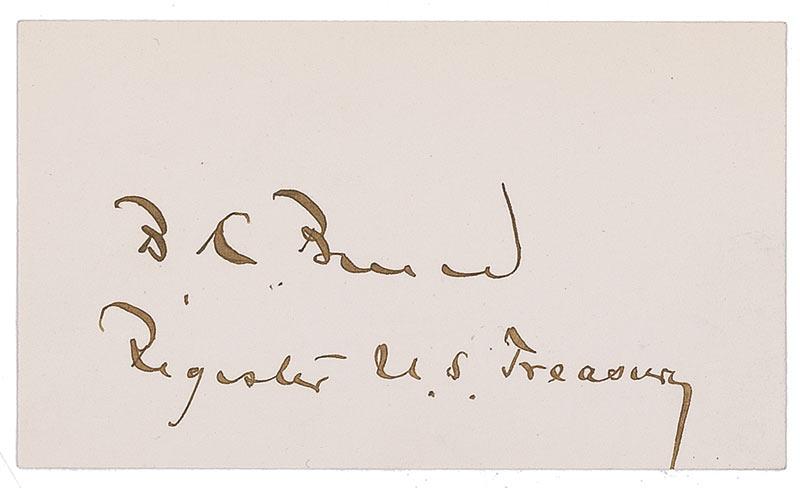 B. K. Bruce
Register U.S. Treasury